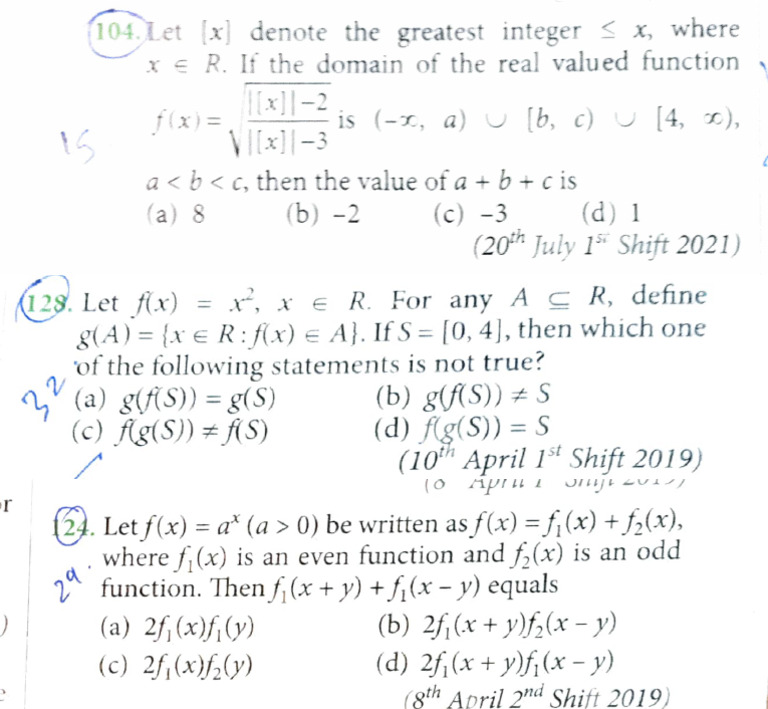 104. Let [x] denote the greatest integer ≤ x, where
x ∈ R. If the domain of the real valued function
15 f(x) = √((|[x]|−2)/(|[x]|−3)) is (−∞, a) ∪ [b, c) ∪ [4, ∞),
a < b < c, then the value of a + b + c is
(a) 8 (b) −2 (c) −3 (d) 1
(20th July 1st Shift 2021)
128. Let f(x) = x², x ∈ R. For any A ⊆ R, define
g(A) = {x ∈ R : f(x) ∈ A}. If S = [0, 4], then which one
of the following statements is not true?
32 (a) g(f(S)) = g(S) (b) g(f(S)) ≠ S
(c) f(g(S)) ≠ f(S) (d) f(g(S)) = S
(10th April 1st Shift 2019)
124. Let f(x) = aˣ (a > 0) be written as f(x) = f₁(x) + f₂(x),
where f₁(x) is an even function and f₂(x) is an odd
29 function. Then f₁(x + y) + f₁(x − y) equals
(a) 2f₁(x)f₁(y) (b) 2f₁(x + y)f₂(x − y)
(c) 2f₁(x)f₂(y) (d) 2f₁(x + y)f₁(x − y)
(8th April 2nd Shift 2019)